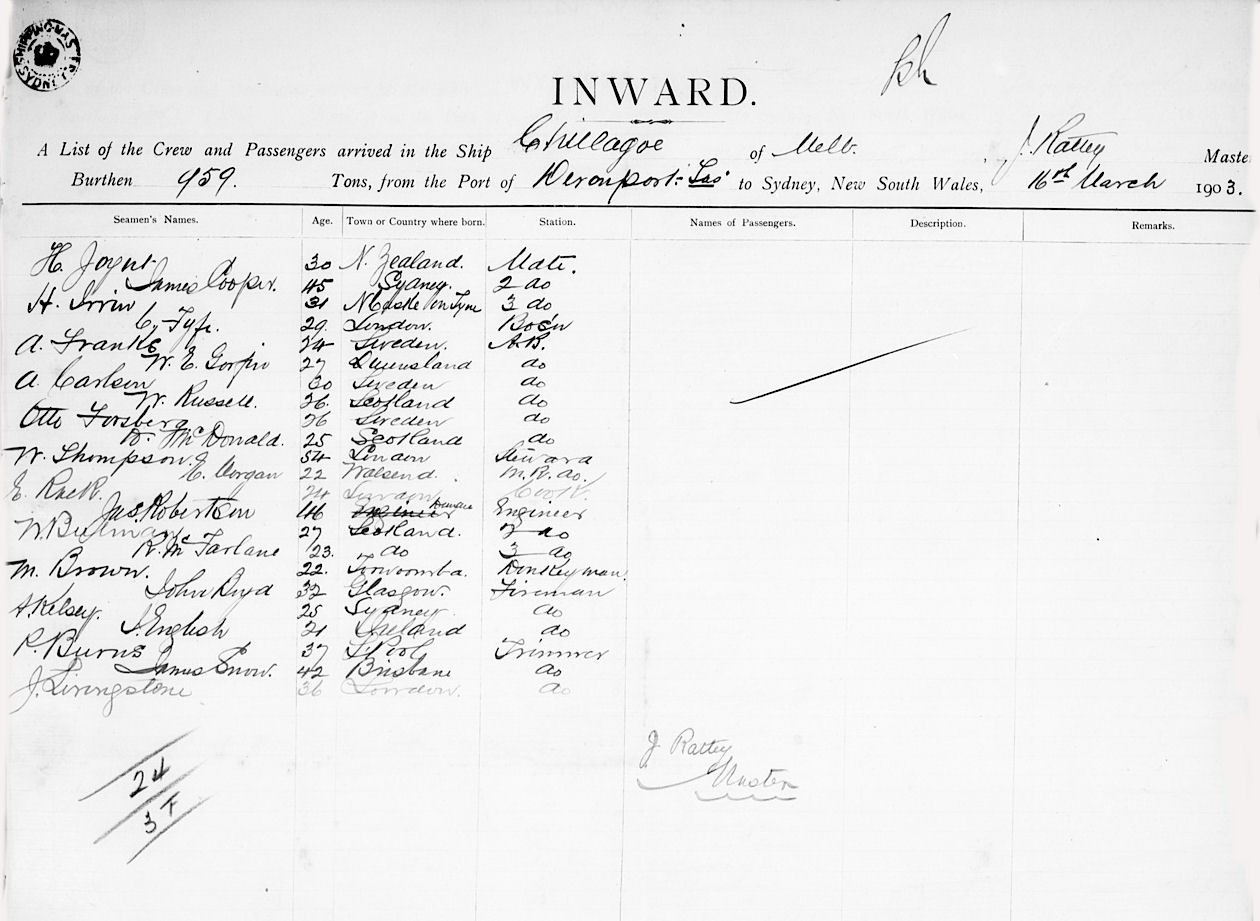 SHIPPING MAS SYDNEY
INWARD.
A List of the Crew and Passengers arrived in the Ship Chillagoe of Melb. J. Rattey Maste
Burthen 959. Tons, from the Port of Devonport: Tas to Sydney, New South Wales, 16th March 1903.
Seamen's Names. Age. Town or Country where born. Station. Names of Passengers. Description. Remarks.
H. 30 N. Zealand. Mate.
James Cooper. 45 Sydney. 2 do
H. Irvin 31 NCastle on Tyne 3 do
C. Fyfe. 29. London. Bos'n
A. Franke 34 Sweden. A.B.
W. E. 27 Queensland do
A. Carlsen 30 Sweden do
W. Russell. 36. Scotland do
Otto Forsberg 36 Sweden do
D. McDonald. 25 Scotland do
W. Thompson. 54 London Steward
E. Morgan 22 Walsend. M.R. do.
E. Rack. 34 London Cook.
Jas. Robertson 46 Engineer Dundee Engineer
W. Bulman 27 Scotland. 2 do
R. McFarlane 23. do 3 do
M. Brown. 22. Toowoomba. Donkeyman.
John Boyd 32 Glasgow. Fireman
A. Kelsey. 25 Sydney do
J. English 21 Ireland do
P. Burns 37 LPool Trimmer
James Snow. 42 Brisbane do
J. Livingstone 36 London. do
J Rattey
Master
24
3 F